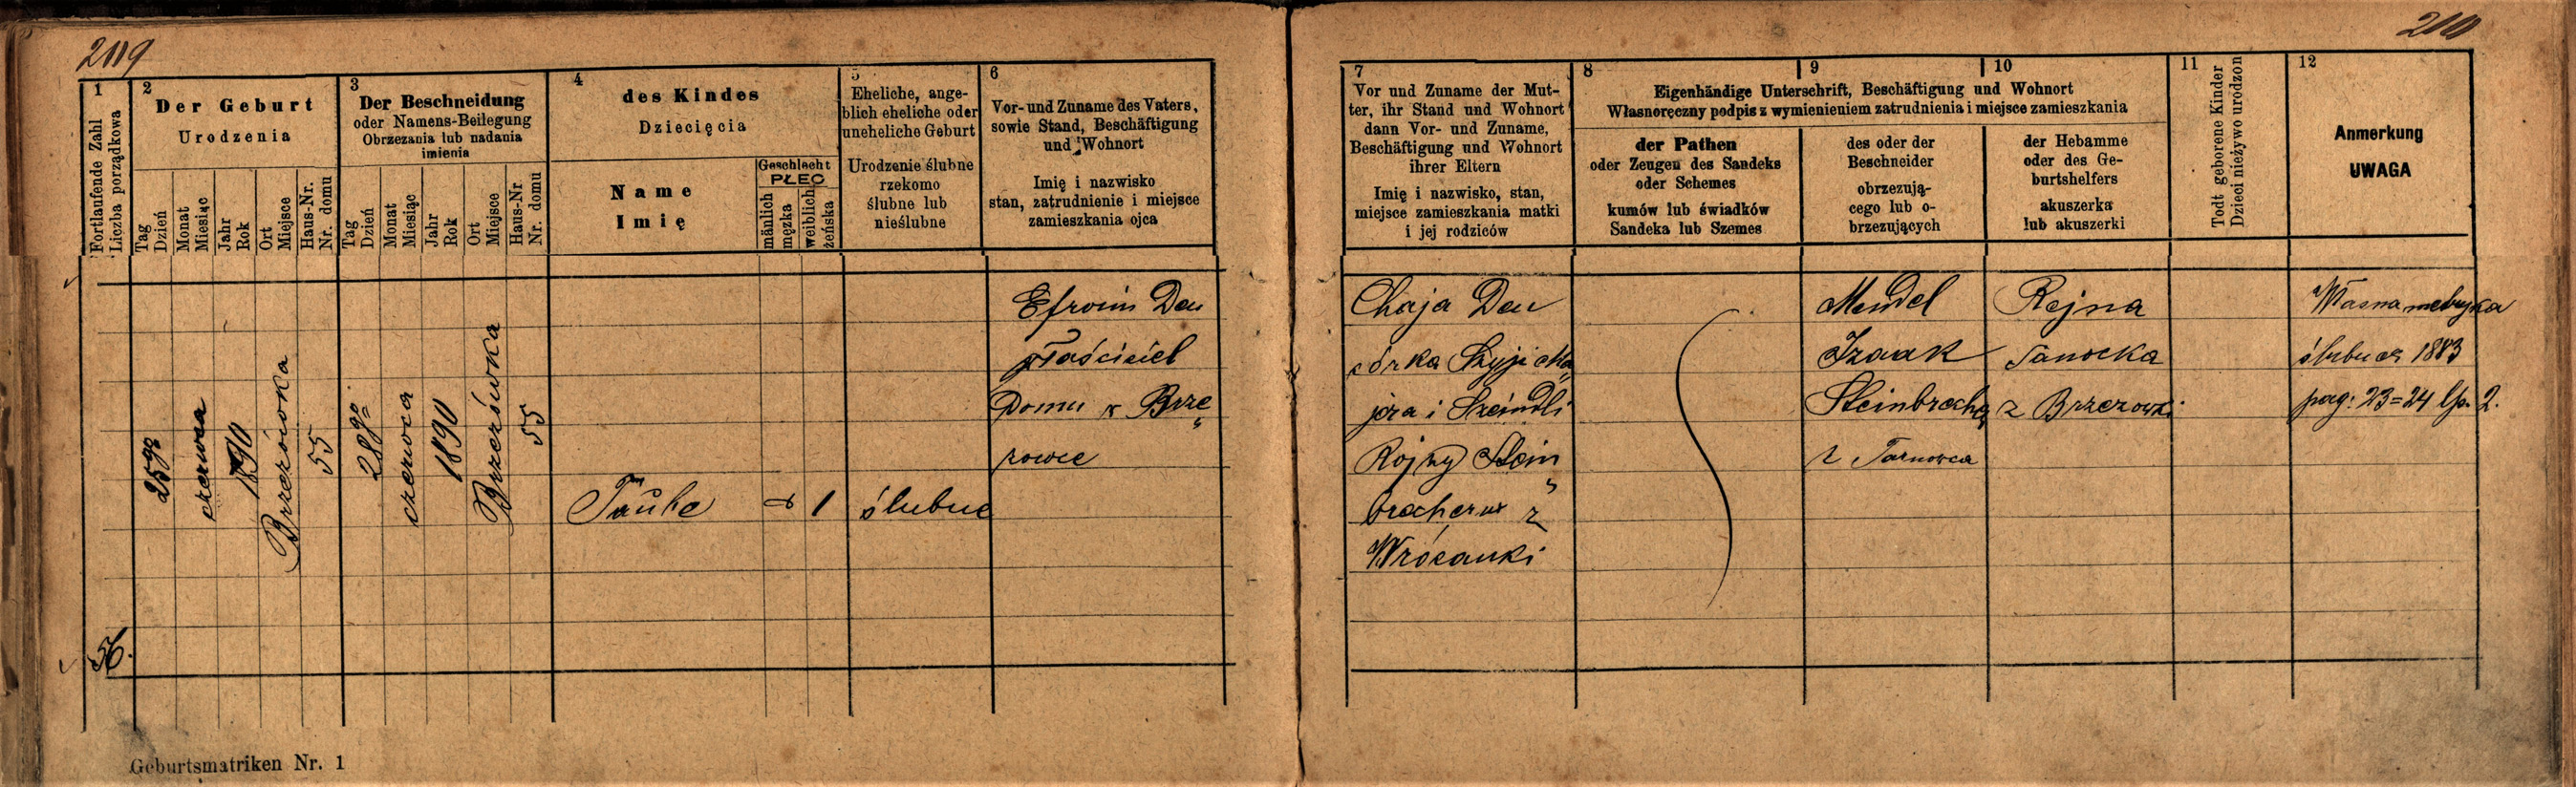 209
210
1
Fortlaufende Zahl
Liczba porządkowa
2
Der Geburt
Urodzenia
Tag
Dzień
Monat
Miesiąc
Jahr
Rok
Ort
Miejsce
Haus-Nr.
Nr. domu
3
Der Beschneidung
oder Namens-Beilegung
Obrzezania lub nadania
imienia
Tag
Dzień
Monat
Miesiąc
Jahr
Rok
Ort
Miejsce
Haus-Nr
Nr. domu
4
des Kindes
Dziecięcia
Name
Imię
Geschlecht
PŁEC
männlich
męzka
weiblich
żeńska
5
Eheliche, ange-
blich eheliche oder
uneheliche Geburt
Urodzenie ślubne
rzekomo
ślubne lub
nieślubne
6
Vor- und Zuname des Vaters,
sowie Stand, Beschäftigung
und Wohnort
Imię i nazwisko
stan, zatrudnienie i miejsce
zamieszkania ojca
7
Vor und Zuname der Mut-
ter, ihr Stand und Wohnort
dann Vor- und Zuname,
Beschäftigung und Wohnort
ihrer Eltern
Imię i nazwisko, stan,
miejsce zamieszkania matki
i jej rodziców
8
9
10
Eigenhändige Unterschrift, Beschäftigung und Wohnort
Własnoręczny podpis z wymienieniem zatrudnienia i miejsce zamieszkania
der Pathen
oder Zeugen des Sandeks
oder Schemes
kumów lub świadków
Sandeka lub Szemes
des oder der
Beschneider
obrzezują-
cego lub o-
brzezujących
der Hebamme
oder des Ge-
burtshelfers
akuszerka
lub akuszerki
11
Todt geborene Kinder
Dzieci nieżywo urodzon
12
Anmerkung
UWAGA
56.
25go
czerwca
1890
Brzezówka
55
28go
czerwca
1890
Brzezówka
55
Taube
1
ślubne
Efroim Deu
właściciel
Domu w Brze
zowce
Chaja Deu
córka Szyji Ma
jora i Szeindli
Rojzy Stein
brocherów z
Wrócanki
Mendel
Izaak
Steinbroche
z Tarnowca
Rejna
Sanocka
z Brzezowki
Własna metryka
ślubu os 1883
pag: 23=24 lp. 2.
Geburtsmatriken Nr. 1